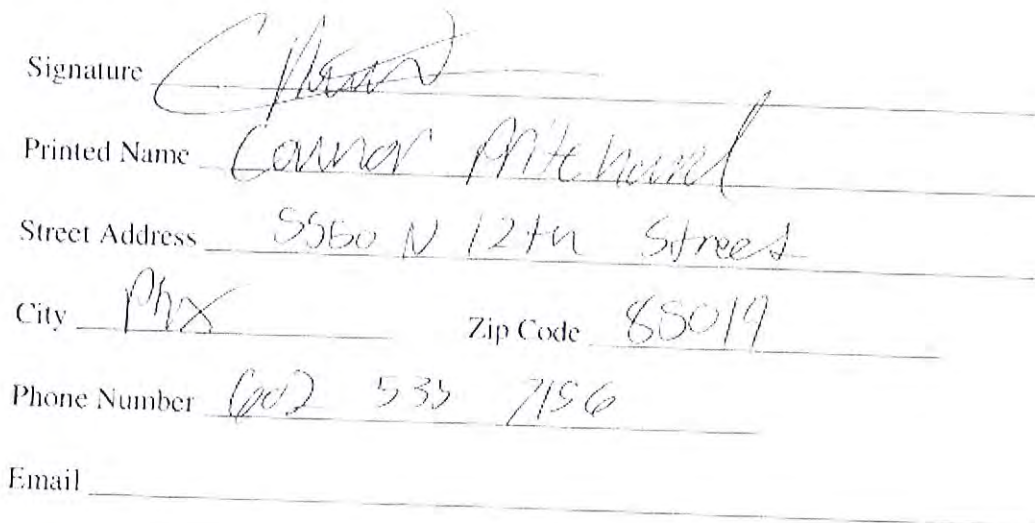 Signature
Printed Name Connor Pritchard
Street Address 5560 N 12th Street
City Phx Zip Code 85019
Phone Number 602 535 7156
Email